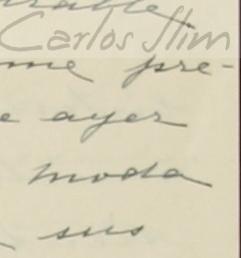 Carlos Slim
me pre-
ayer
moda
sus